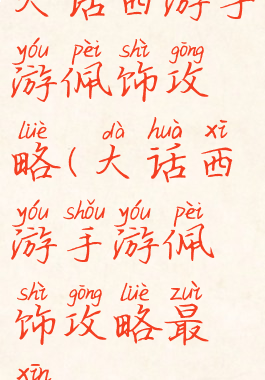 大话西游手
yóu pèi shì gōng
游佩饰攻
lüè dà huà xī
略(大话西
yóu shǒu yóu pèi
游手游佩
shì gōng lüè zuì
饰攻略最
xīn